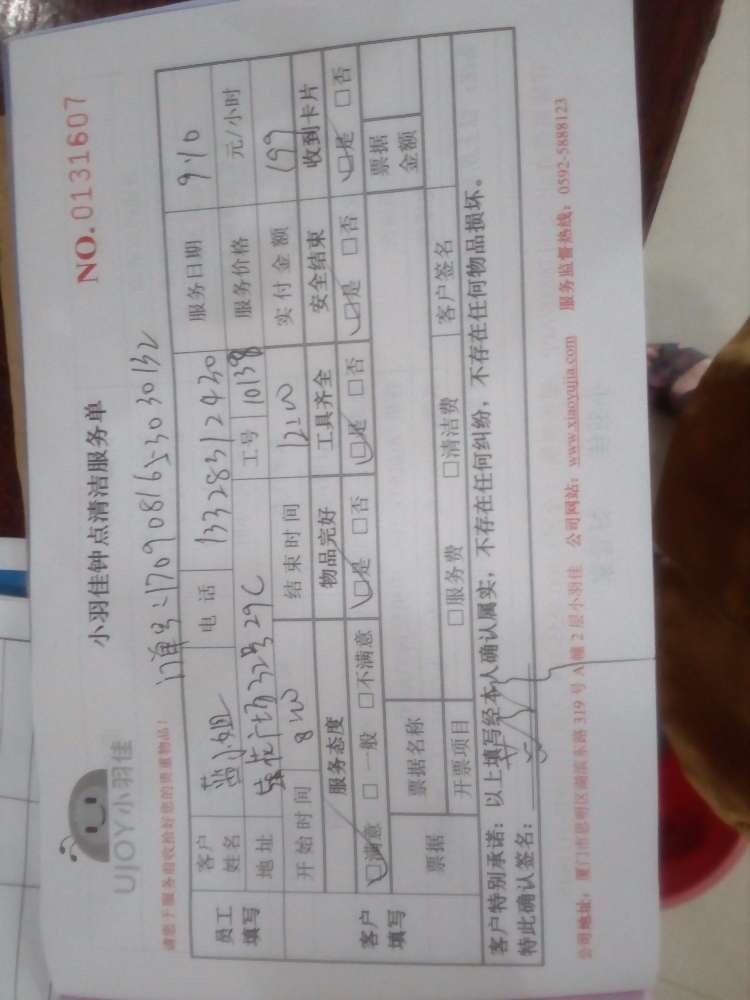 UJOY小羽佳
小羽佳钟点清洁服务单
NO. 0131607
订单号:17090816530 30132
请您于服务前收拾好您的贵重物品!
员工填写 客户姓名 黄小姐 电话 13328312430 服务日期 9.10
地址 广场32号29C 工号 10138 服务价格 元/小时
开始时间 8:00 结束时间 12:00 实付金额 199
客户填写 服务态度 物品完好 工具齐全 安全结束 收到卡片
☑满意 □一般 □不满意 ☑是 □否 ☑是 □否 ☑是 □否 ☑是 □否
票据 票据名称 票据金额
开票项目 □服务费 □清洁费 客户签名
客户特别承诺:以上填写经本人确认属实,不存在任何纠纷,不存在任何物品损坏。
特此确认签名:
公司地址:厦门市思明区湖滨东路319号A幢2层小羽佳 公司网站:www.xiaoyujia.com 服务监督热线:0592-5888123